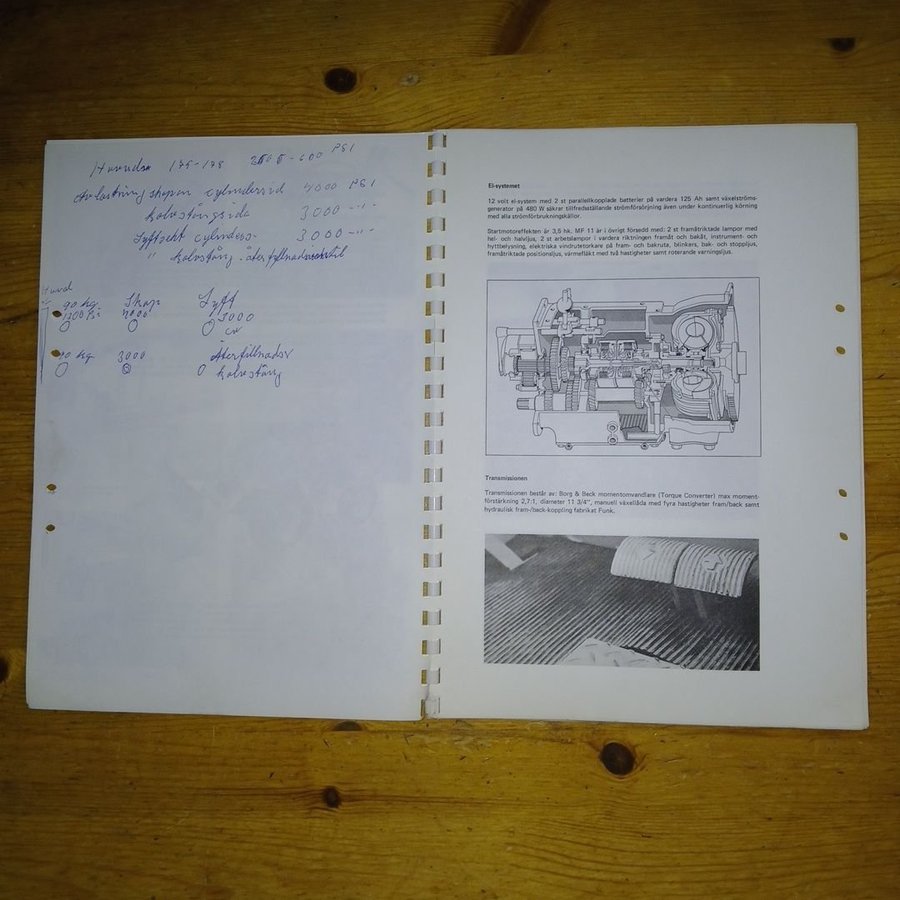 175-178
PSI
cylindersid 4000 PSI
kolvstångsida 3000 -"-
3000 -"-
" kolvstång.
90 kg. Skop Lyft
1300 Psi 4000 3000
90 kg 3000
kolvstång
El-systemet
12 volt el-system med 2 st parallellkopplade batterier på vardera 125 Ah samt växelströms-
generator på 480 W säkrar tillfredsställande strömförsörjning även under kontinuerlig körning
med alla strömförbrukningskällor.
Startmotoreffekten är 3,5 hk. MF 11 är i övrigt försedd med: 2 st framåtriktade lampor med
hel- och halvljus, 2 st arbetslampor i vardera riktningen framåt och bakåt, instrument- och
hyttbelysning, elektriska vindrutetorkare på fram- och bakruta, blinkers, bak- och stoppljus,
framåtriktade positionsljus, värmefläkt med två hastigheter samt roterande varningsljus.
Transmissionen
Transmissionen består av: Borg & Beck momentomvandlare (Torque Converter) max moment-
förstärkning 2,7:1, diameter 11 3/4", manuell växellåda med fyra hastigheter fram/back samt
hydraulisk fram-/back-koppling fabrikat Funk.